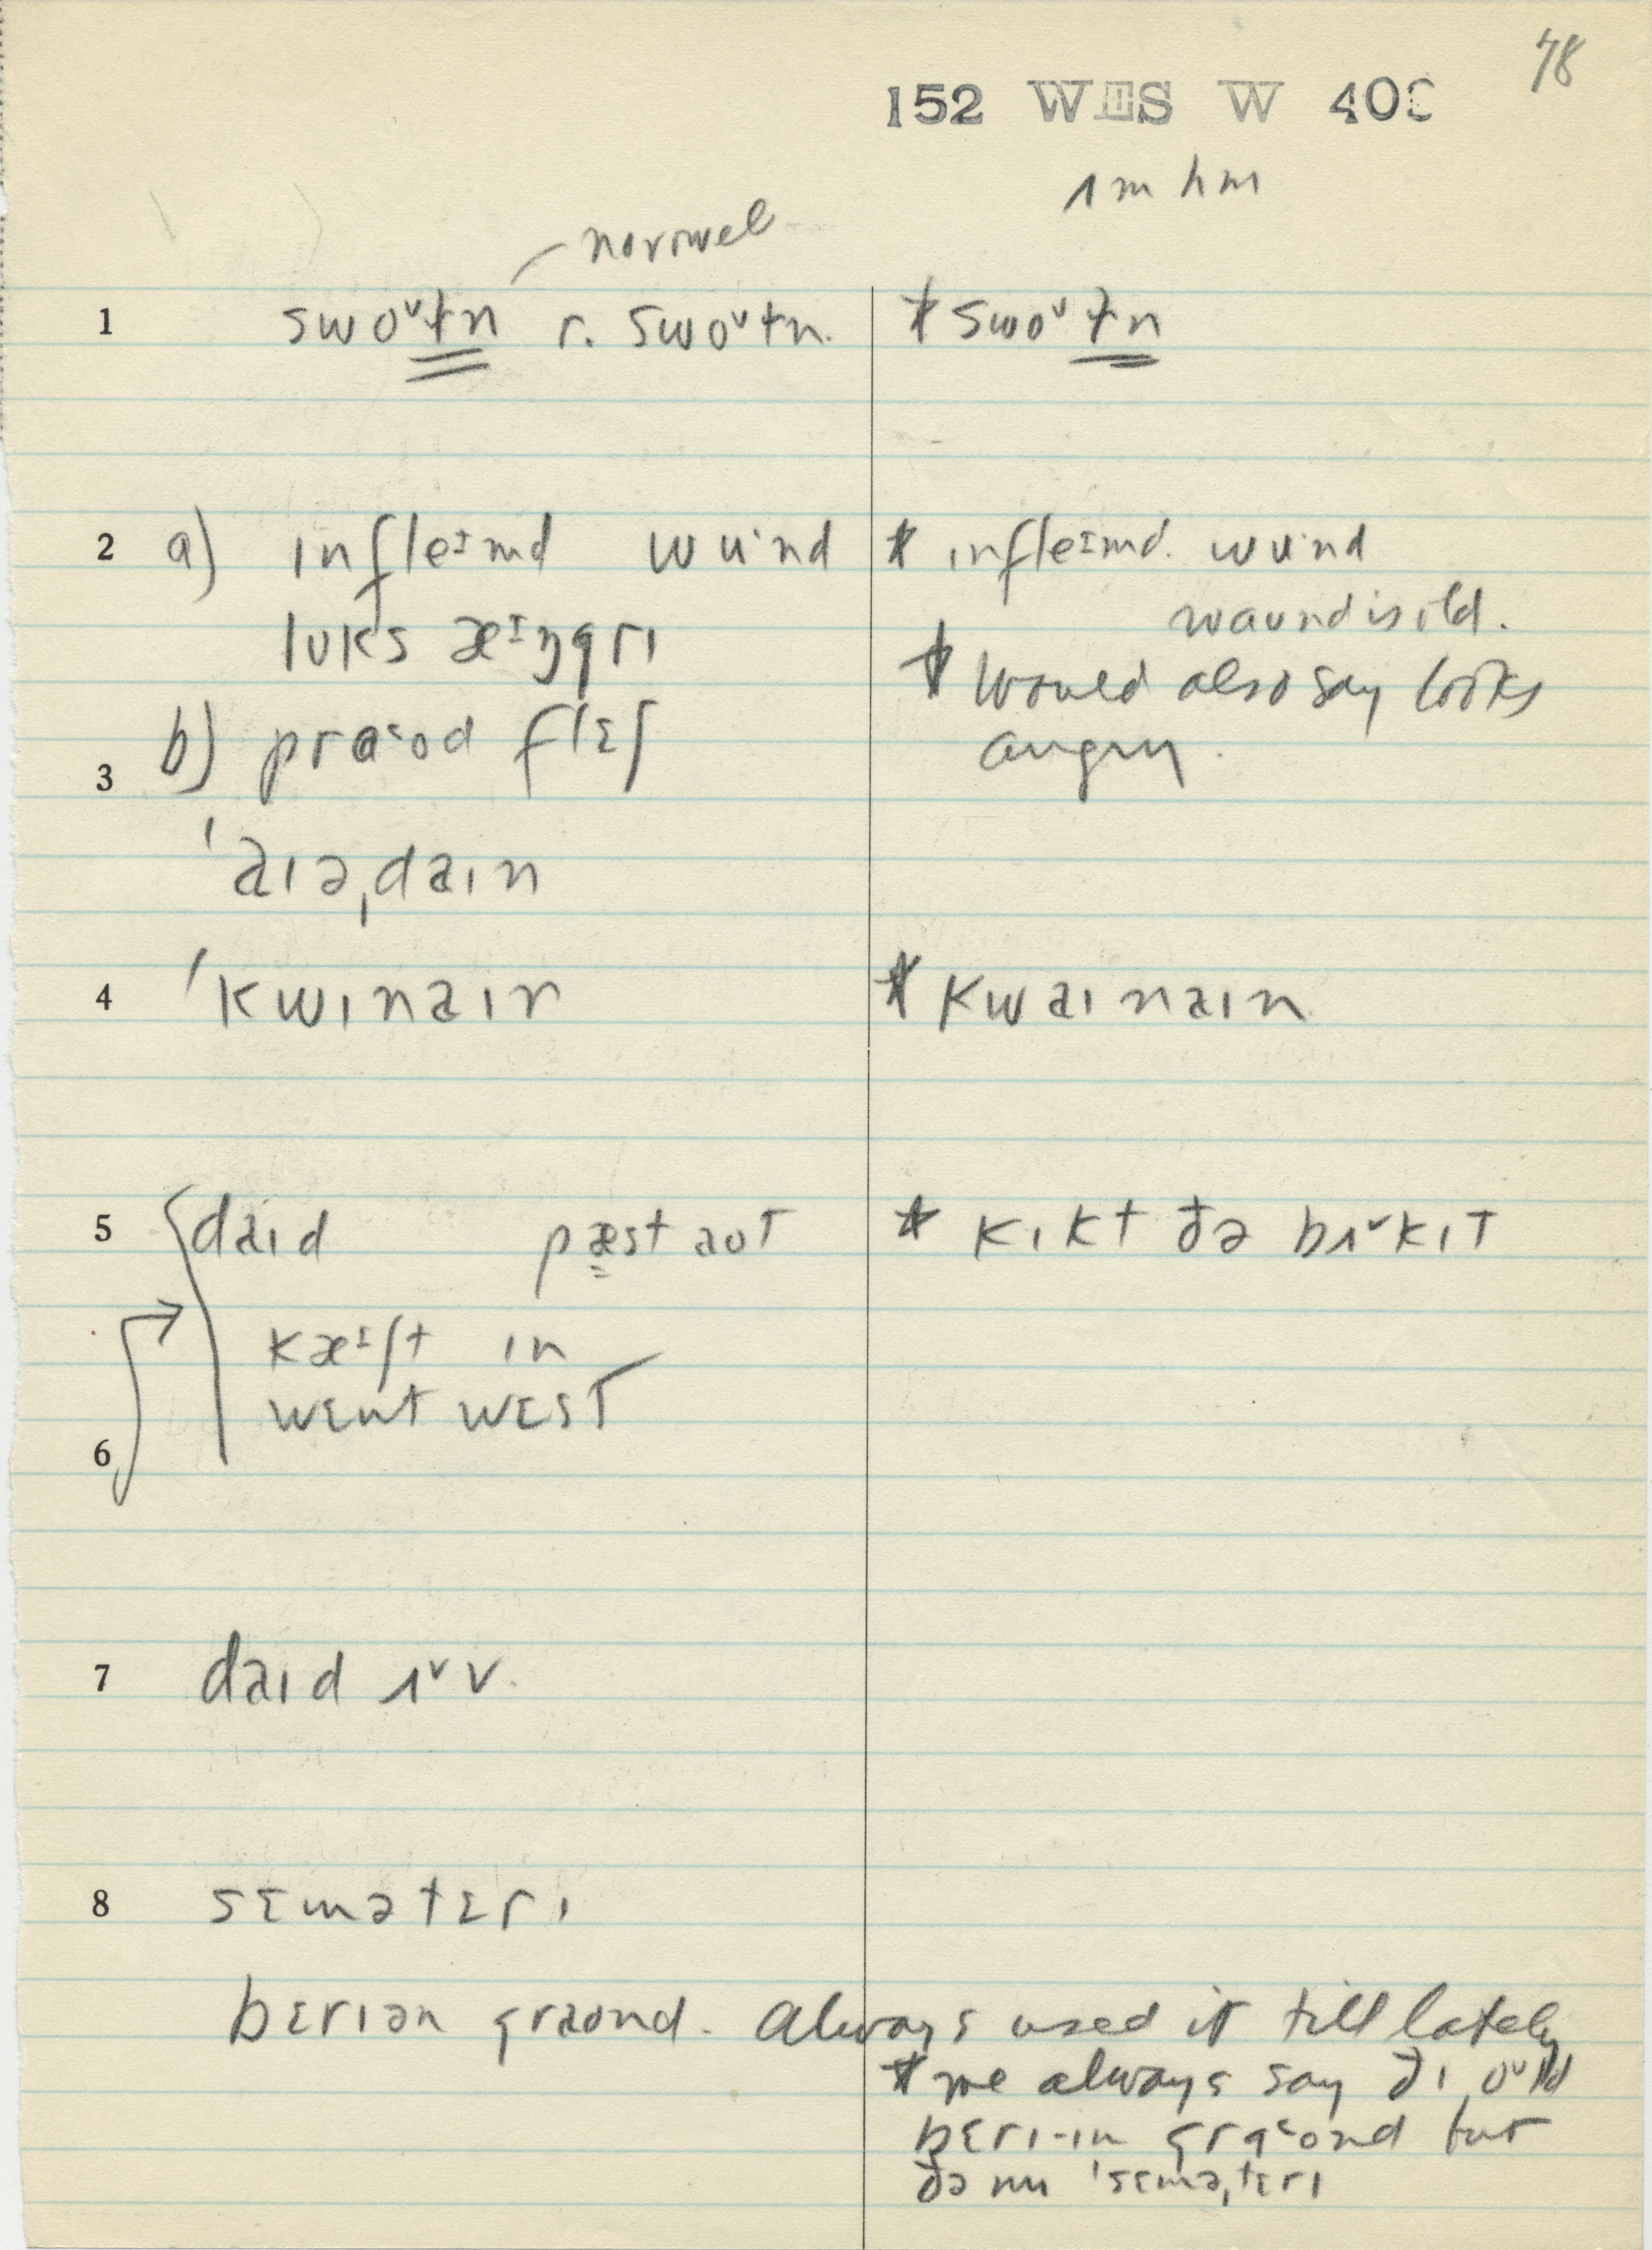 78
152 WES W 40
ʌm hm
normal
1 swoᵛtn r. swoᵛtn. * swoᵛtn
2 a) ɪnfleᶦmd wu·nd * ɪnfleᶦmd. wu·nd
waund is old.
lʊks æᶦŋgrɪ * would also say looks
b) praᵋʊd flɛʃ angry.
3
ˈaɪəˌdaɪn
4 ˈkwɪnaɪn * kwaɪnaɪn
5 daɪd pæst aʊt * kɪkt ðə bʌᵛkɪt
kæᶦʃt ɪn
wɛnt wɛst
6
7 daɪd ʌᵛv.
8 sɛmətɛrɪ
bɛrɪən graʊnd. always used it till lately
* we always say ðɪ oᵛld
bɛrɪ-ɪn graᵋʊnd but
ðə nu ˈsɛməˌtɛrɪ